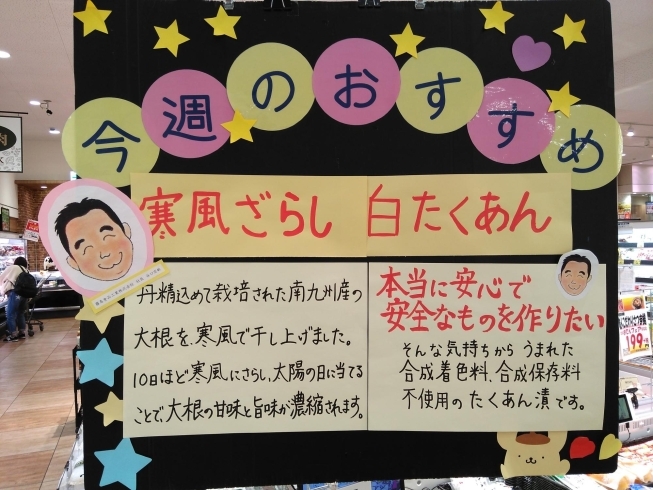 今週のおすすめ
寒風ざらし 白たくあん
丹精込めて栽培された南九州産の
大根を、寒風で干し上げました。
10日ほど寒風にさらし、太陽の日に当てる
ことで、大根の甘味と旨味が濃縮されます。
本当に安心で
安全なものを作りたい
そんな気持ちから うまれた
合成着色料、合成保存料
不使用の たくあん漬です。
199